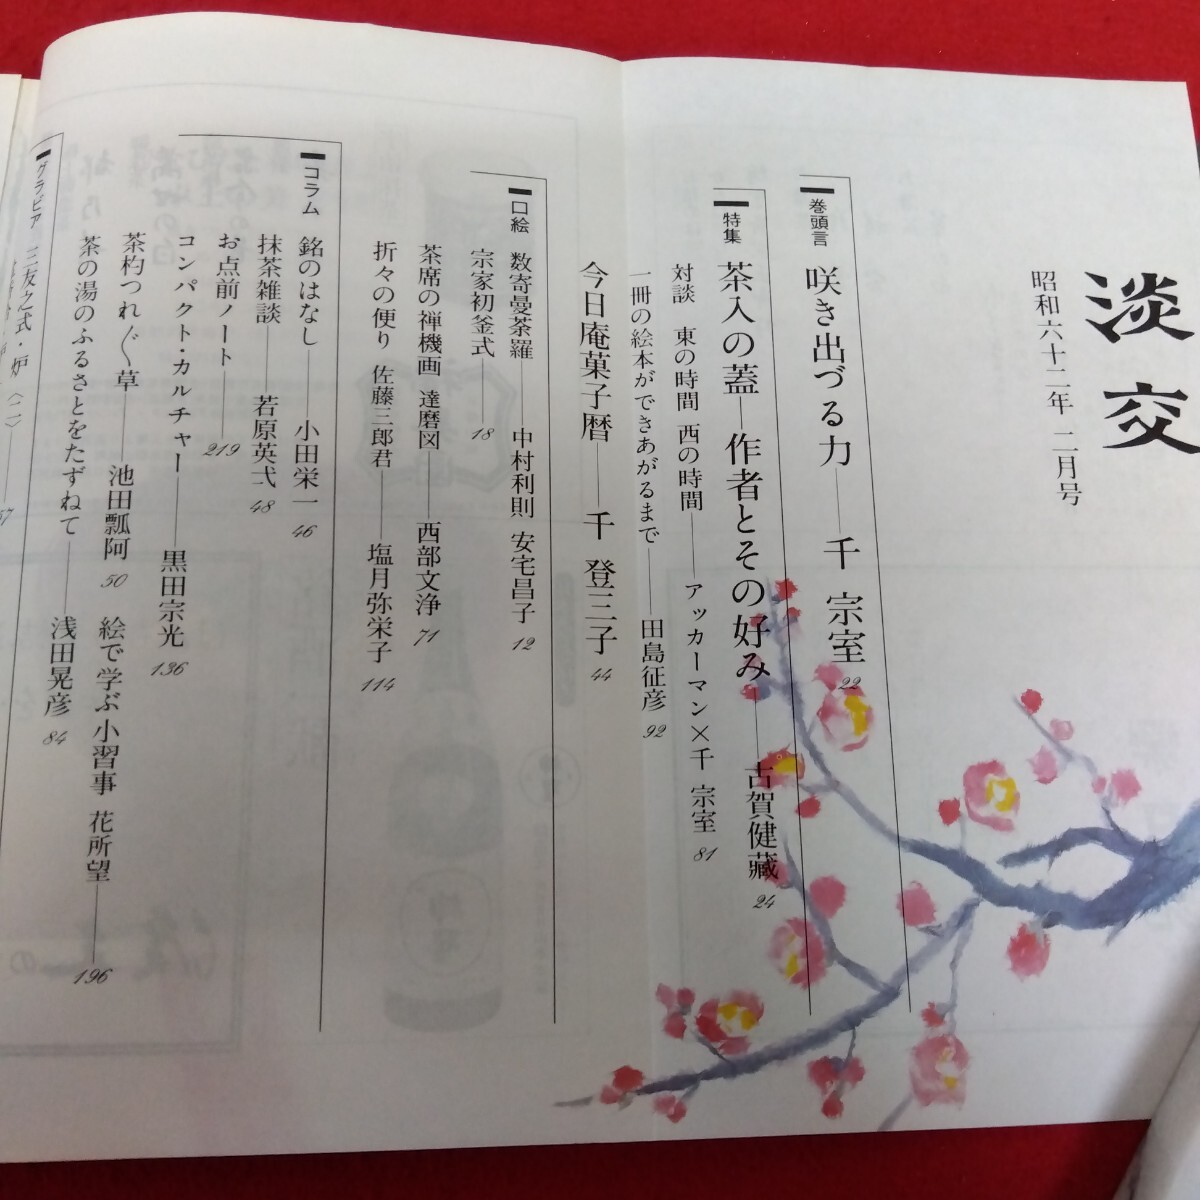 淡交
昭和六十二年 二月号
巻頭言 咲き出づる力——千 宗室 22
特集 茶入の蓋—作者とその好み——古賀健藏 24
対談 東の時間 西の時間——アッカーマン×千 宗室 81
一冊の絵本ができあがるまで——田島征彦 92
今日庵菓子暦——千 登三子 44
口絵 数寄曼荼羅——中村利則 安宅昌子 12
宗家初釜式——18
茶席の禅機画 達磨図——西部文浄 71
折々の便り 佐藤三郎君——塩月弥栄子 114
コラム 銘のはなし——小田栄一 46
抹茶雑談——若原英弌 48
お点前ノート——219
コンパクト・カルチャー——黒田宗光 136
茶杓つれ〴〵草——池田瓢阿 50 絵で学ぶ小習事 花所望——196
茶の湯のふるさとをたずねて——浅田晃彦 84
グラビア 三友之式・炉〈二〉——57